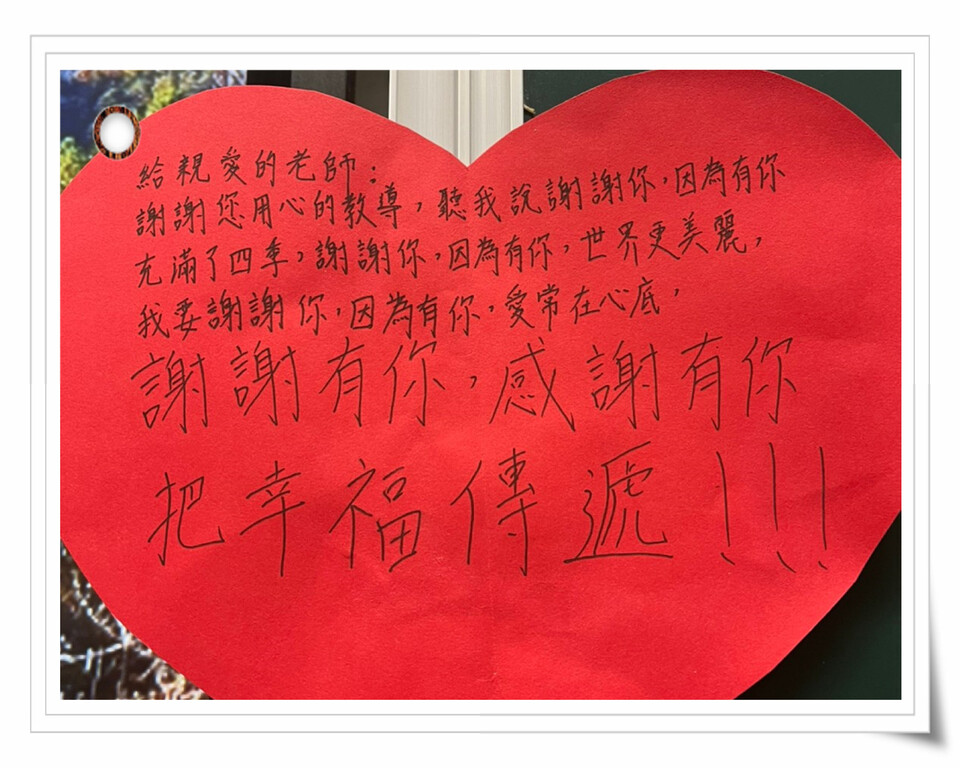 給親愛的老師：
謝謝您用心的教導，聽我說謝謝你，因為有你
充滿了四季，謝謝你，因為有你，世界更美麗，
我要謝謝你，因為有你，愛常在心底，
謝謝有你，感謝有你
把幸福傳遞！！！